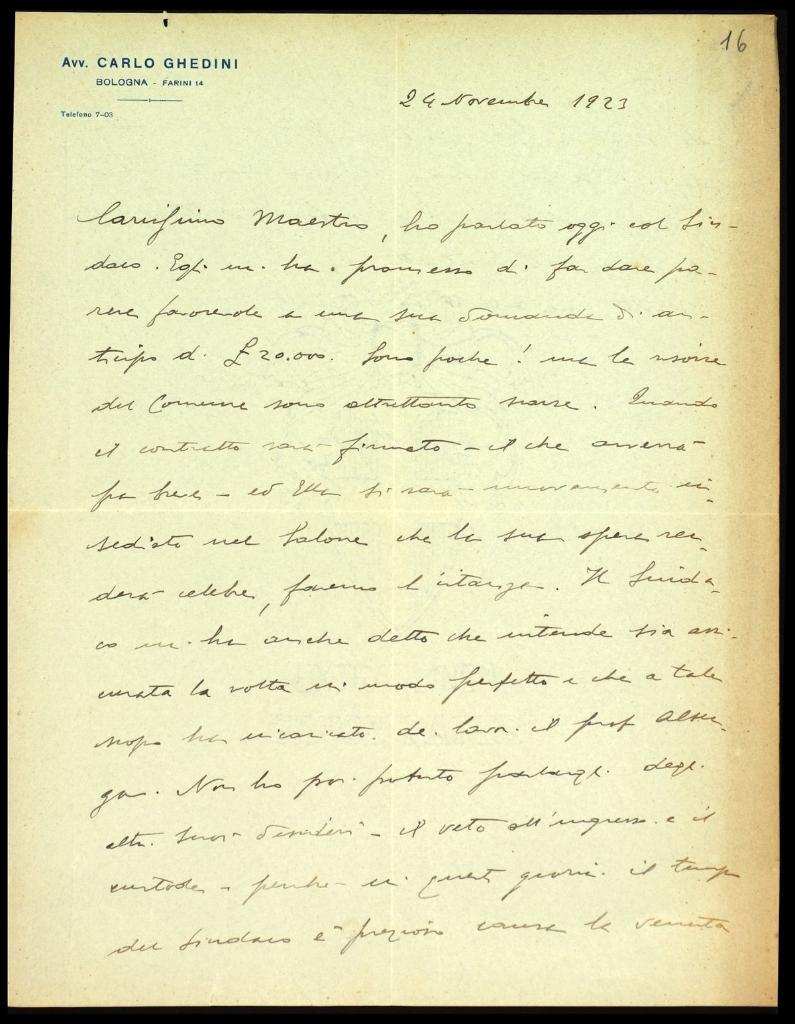 16
Avv. CARLO GHEDINI
BOLOGNA - FARINI 14
Telefono 7-03
24 Novembre 1923
Carissimo Maestro, ho parlato oggi col Sin-
daco. Egli mi ha promesso di far dare pa-
rere favorevole a una sua domanda di an-
ticipo di £ 20.000. Sono poche! ma le risorse
del Comune sono altrettanto scarse. Quando
il contratto sarà firmato - il che avverrà
fra breve - ed Ella si sarà nuovamente in-
sediato nel Salone che la sua opera ren-
derà celebre, faremo l'istanza. Il Sinda-
co mi ha anche detto che intende sia assi-
curata la volta in modo perfetto e che a tale
scopo ha incaricato dei lavori il prof
. Non ho poi potuto parlargli degli
altri suoi desideri - il veto all'ingresso e il
custode - perchè in questi giorni il tempo
del Sindaco è prezioso causa la venuta